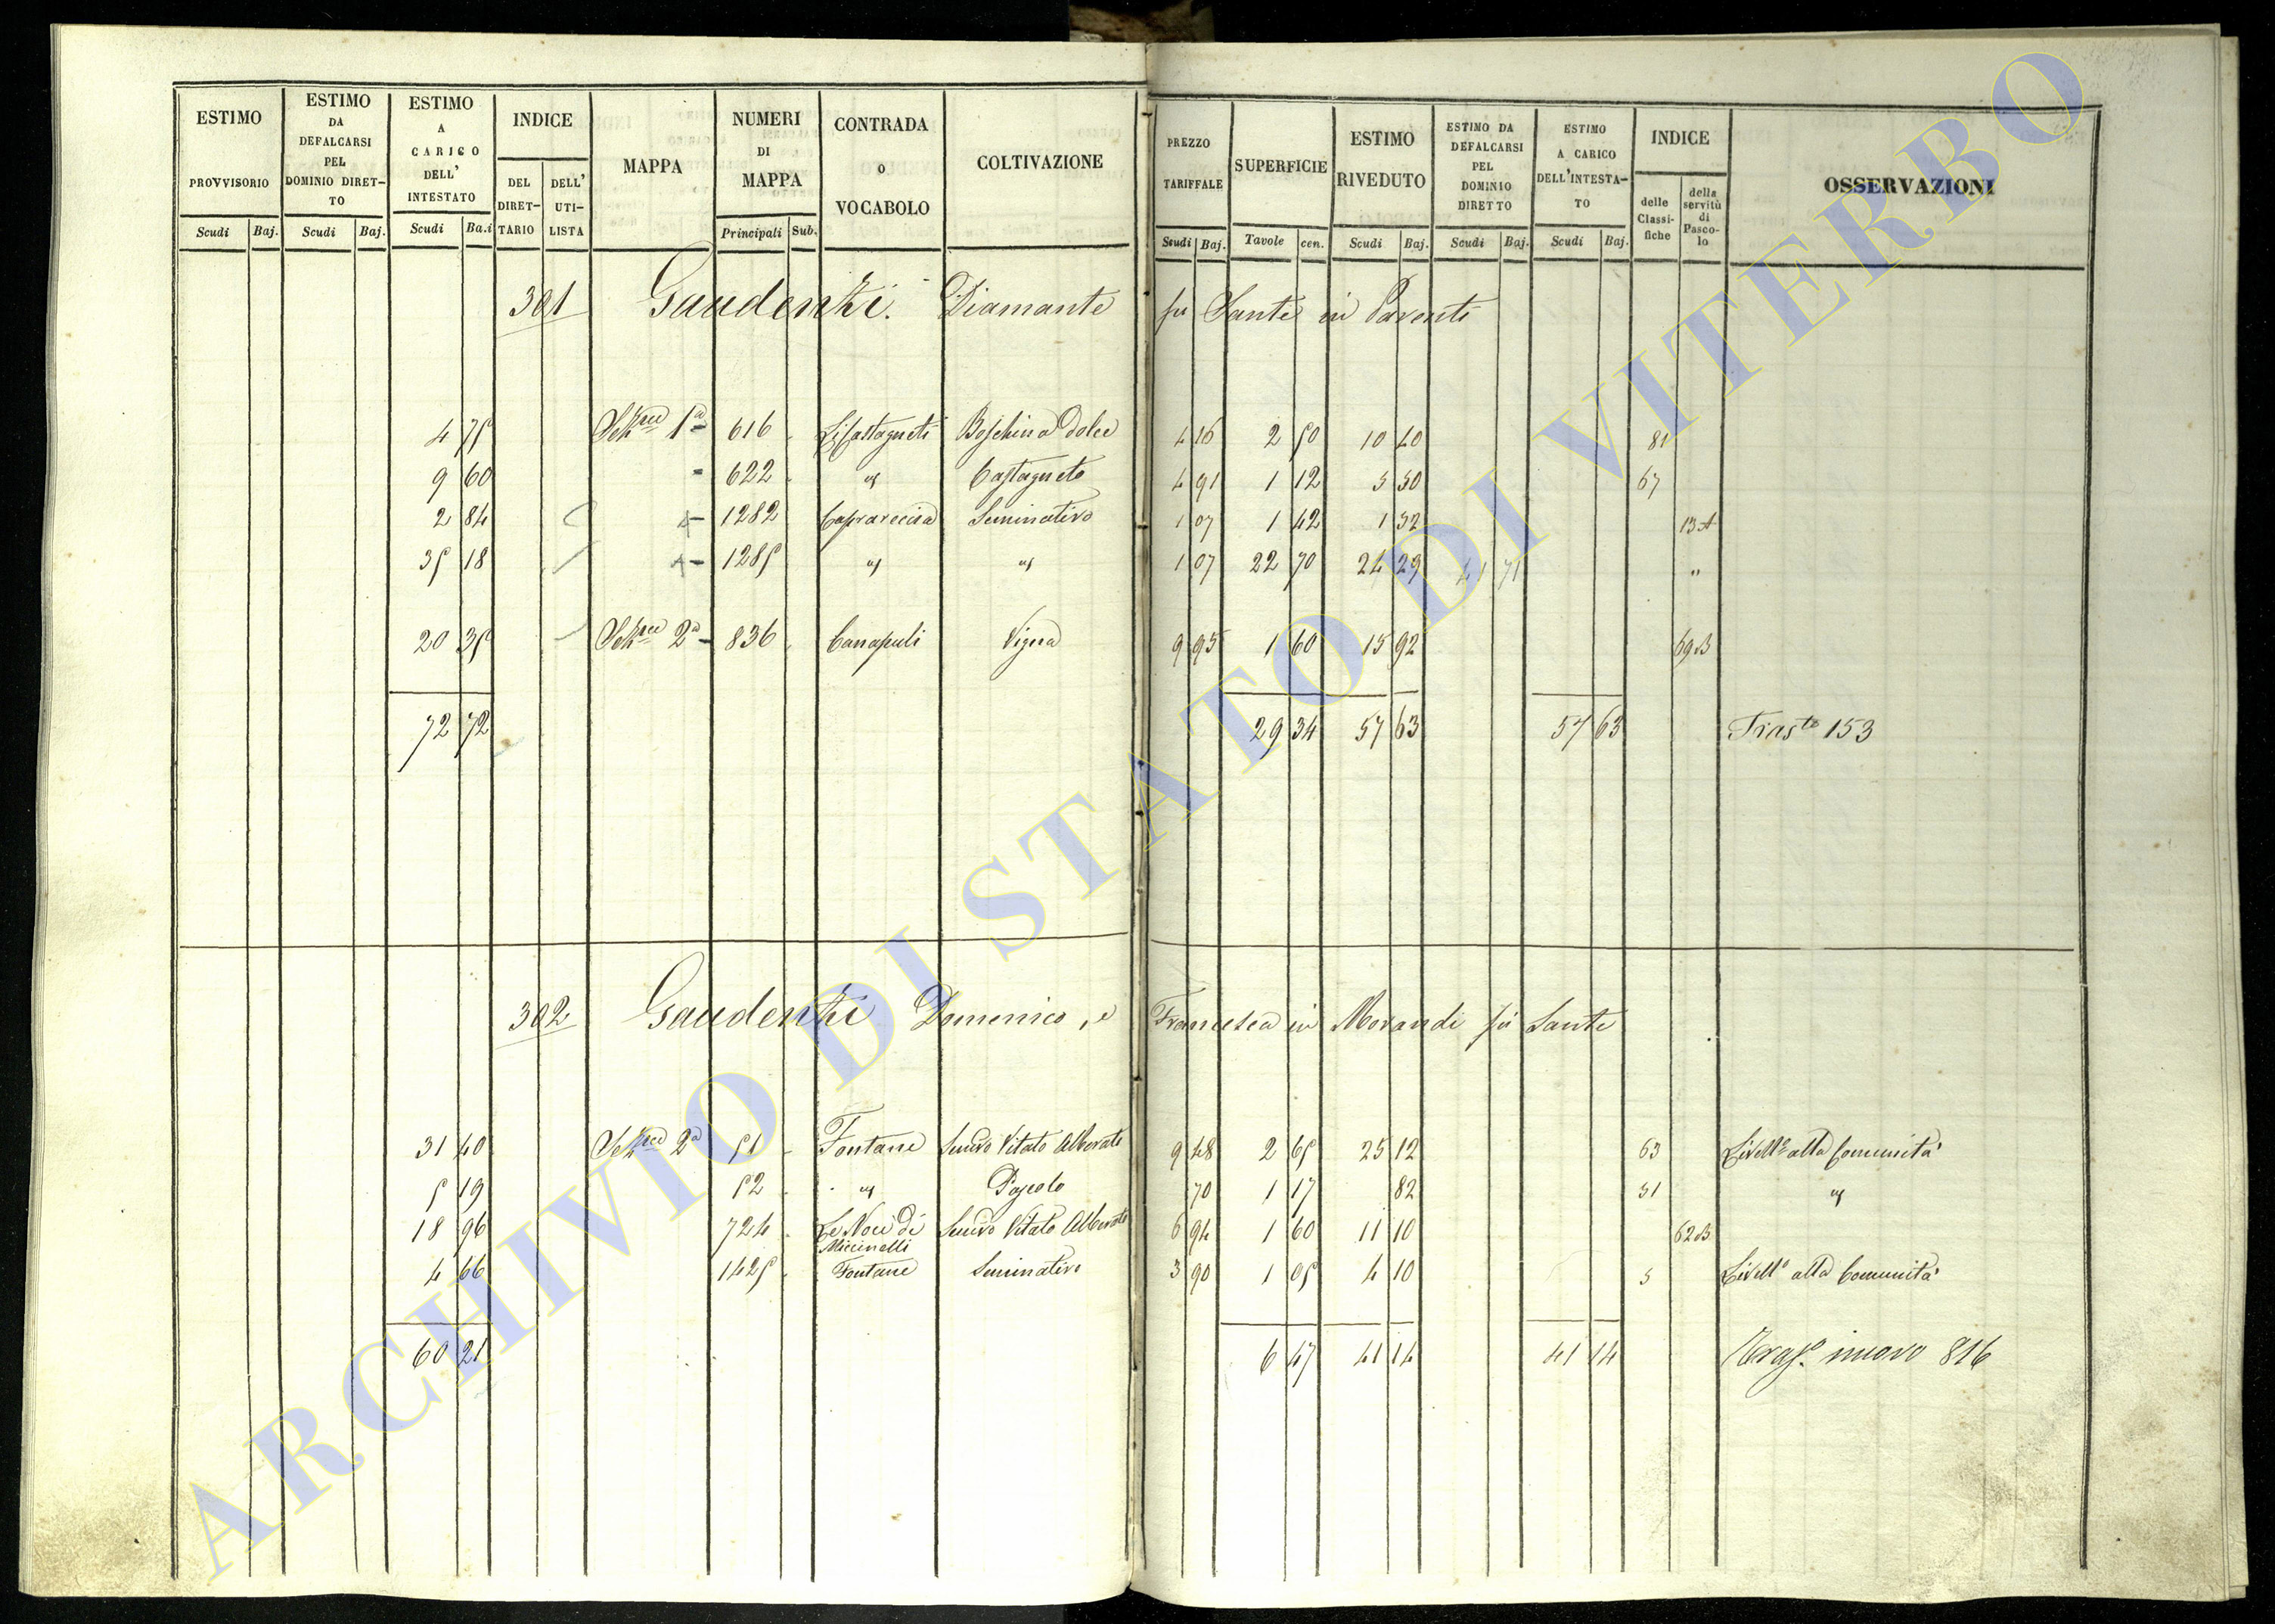 ESTIMO PROVVISORIO Scudi Baj.
ESTIMO DA DEFALCARSI PEL DOMINIO DIRETTO Scudi Baj.
ESTIMO A CARICO DELL' INTESTATO Scudi Ba.i
INDICE DEL DIRETTARIO DELL' UTILISTA
MAPPA
NUMERI DI MAPPA Principali Sub.
CONTRADA O VOCABOLO
COLTIVAZIONE
PREZZO TARIFFALE Scudi Baj.
SUPERFICIE Tavole cen.
ESTIMO RIVEDUTO Scudi Baj.
ESTIMO DA DEFALCARSI PEL DOMINIO DIRETTO Scudi Baj.
ESTIMO A CARICO DELL'INTESTATO Scudi Baj.
INDICE delle Classifiche della servitù di Pascolo
OSSERVAZIONI
301 Gaudenzi Diamante fu Sante in Parenti
4 75 Sez.ne 1a 616 Li Castagneti Boschina Dolce 4 16 2 50 10 40 81
9 60 - 622 " Castagneto 4 91 1 12 5 50 67
2 84 - 1282 Caprareccia Seminativo 1 07 1 42 1 52 13 A
35 18 - 1285 " " 1 07 22 70 24 29 41 71 "
20 35 Sez.ne 2a 836 Canapuli Vigna 9 95 1 60 15 92 69 B
72 72 29 34 57 63 57 63 Trasto 153
302 Gaudenzi Domenico, e Francesca in Morandi fu Sante
31 40 Sez.ne 2a 51 Fontane Semvo Vitato Alborato 9 48 2 65 25 12 63 Livello alla Comunità
5 19 52 " Pascolo 70 1 17 82 51 "
18 96 724 Le Noci di Miccinelli Semvo Vitato Alborato 6 94 1 60 11 10 62 B
4 66 1425 Fontane Seminativo 3 90 1 05 4 10 5 Livello alla Comunità
60 21 6 47 41 14 41 14 Traspo nuovo 816
ARCHIVIO DI STATO DI VITERBO